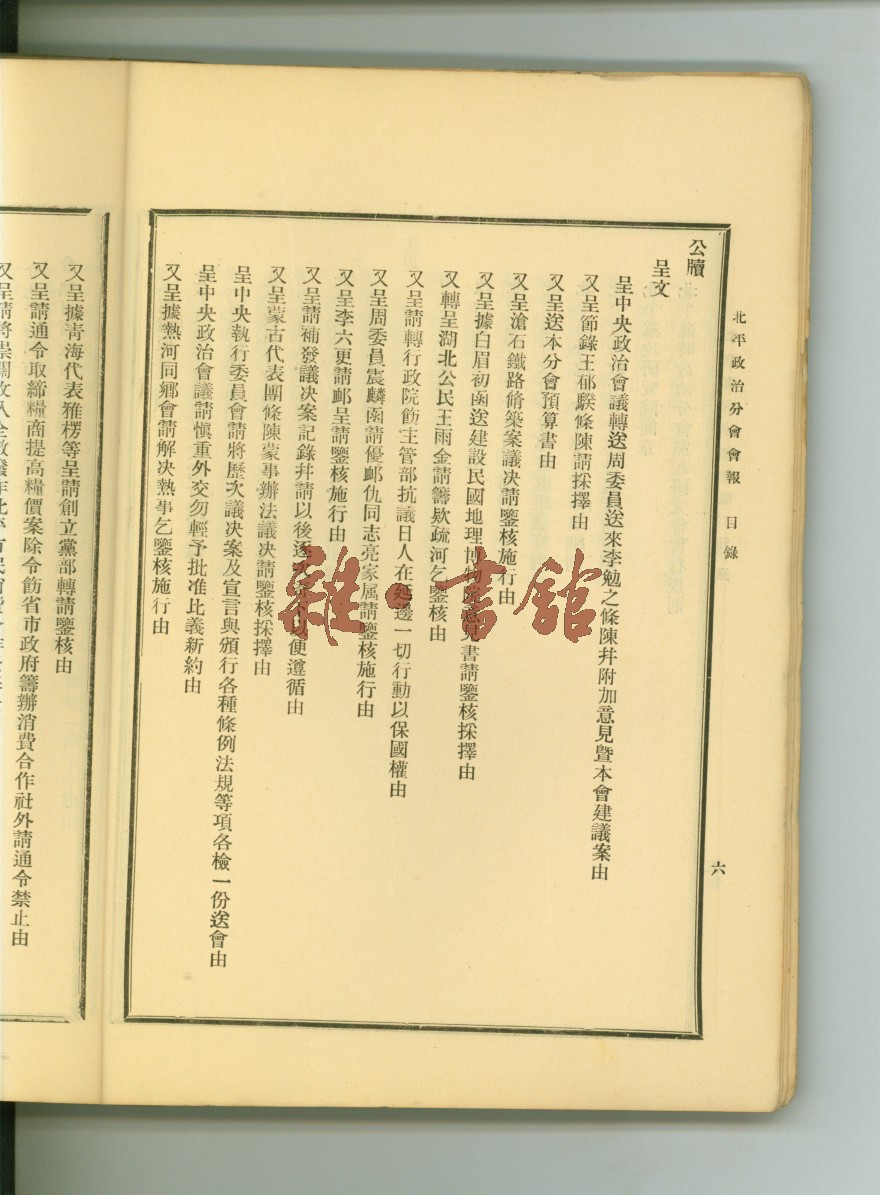 北平政治分會會報 目錄
六
公牘
呈文
呈中央政治會議轉送周委員送來李勉之條陳幷附加意見曁本會建議案由
又呈節錄王郁騤條陳請採擇由
又呈送本分會預算書由
又呈滄石鐵路脩築案議决請鑒核施行由
又呈據白眉初函送建設民國地理博物院意見書請鑒核採擇由
又轉呈湖北公民王雨金請籌欵疏河乞鑒核由
又呈請轉行政院飭主管部抗議日人在延邊一切行動以保國權由
又呈周委員震麟函請優邺仇同志亮家属請鑒核施行由
又呈李六更請邺呈請鑒核施行由
又呈請補發議决案記錄幷請以後逐便遵循由
又呈蒙古代表團條陳蒙事辦法議决請鑒核採擇由
呈中央執行委員會請將歷次議决案及宣言與頒行各種條例法規等項各檢一份送會由
呈中央政治會議請愼重外交勿輕予批准比義新約由
又呈據熱河同鄉會請解决熱事乞鑒核施行由
又呈據靑海代表雅楞等呈請創立黨部轉請鑒核由
又呈請通令取締糧商提高糧價案除令飭省市政府籌辦消費合作社外請通令禁止由
又呈請將
雜·書館